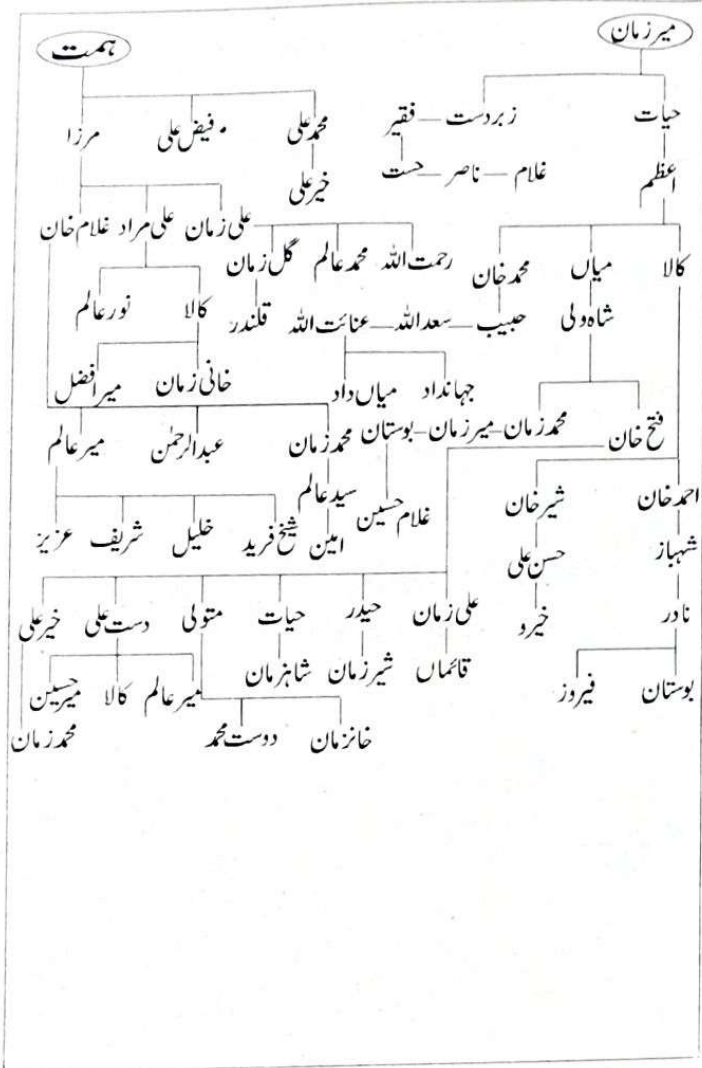 میرزمان ہمت
حیات زبردست – فقیر محمد علی فیض علی مرزا
اعظم غلام – ناصر – حست خیر علی
علی زمان علی مراد غلام خان
کالا میاں محمد خان رحمت اللہ محمد عالم گل زمان
شاہ ولی حبیب – سعد اللہ – عنائت اللہ قلندر کالا نور عالم
جہانداد میاں داد خانی زمان میر افضل
فتح خان محمد زمان – میرزمان – بوستان محمد زمان عبدالرحمٰن میر عالم
احمد خان شیر خان غلام حسین سید عالم
امین شیخ فرید خلیل شریف عزیز
شہباز حسن علی
نادر خیرو علی زمان حیدر حیات متولی دست علی خیر علی
بوستان فیروز قائماں شیرزمان شاہزمان میر عالم کالا میر حسین
خانزمان دوست محمد محمد زمان